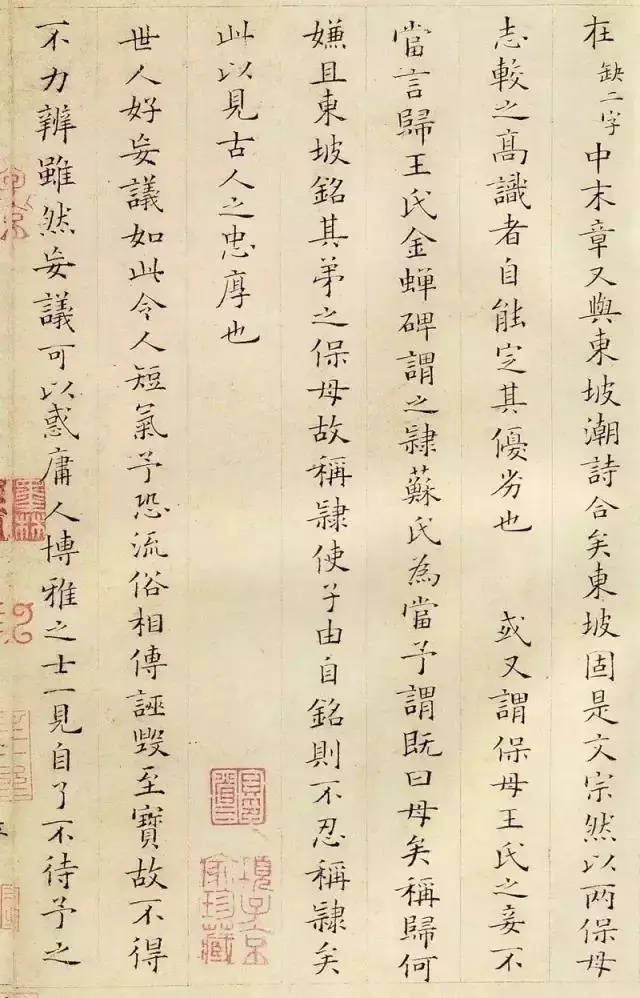 在缺二字中末章又與東坡潮詩合矣東坡固是文宗然以两保母
志較之高識者自能定其優劣也 或又謂保母王氏之妾不
當言歸王氏金蝉碑謂之隸蘇氏為當予謂既曰母矣稱歸何
嫌且東坡銘其弟之保母故稱隸使子由自銘則不忍稱隸矣
此以見古人之忠厚也
世人好妄議如此令人短氣予恐流俗相傳誣毀至寶故不得
不力辨雖然妄議可以惑庸人博雅之士一見自了不待予之
項子京
家珍藏